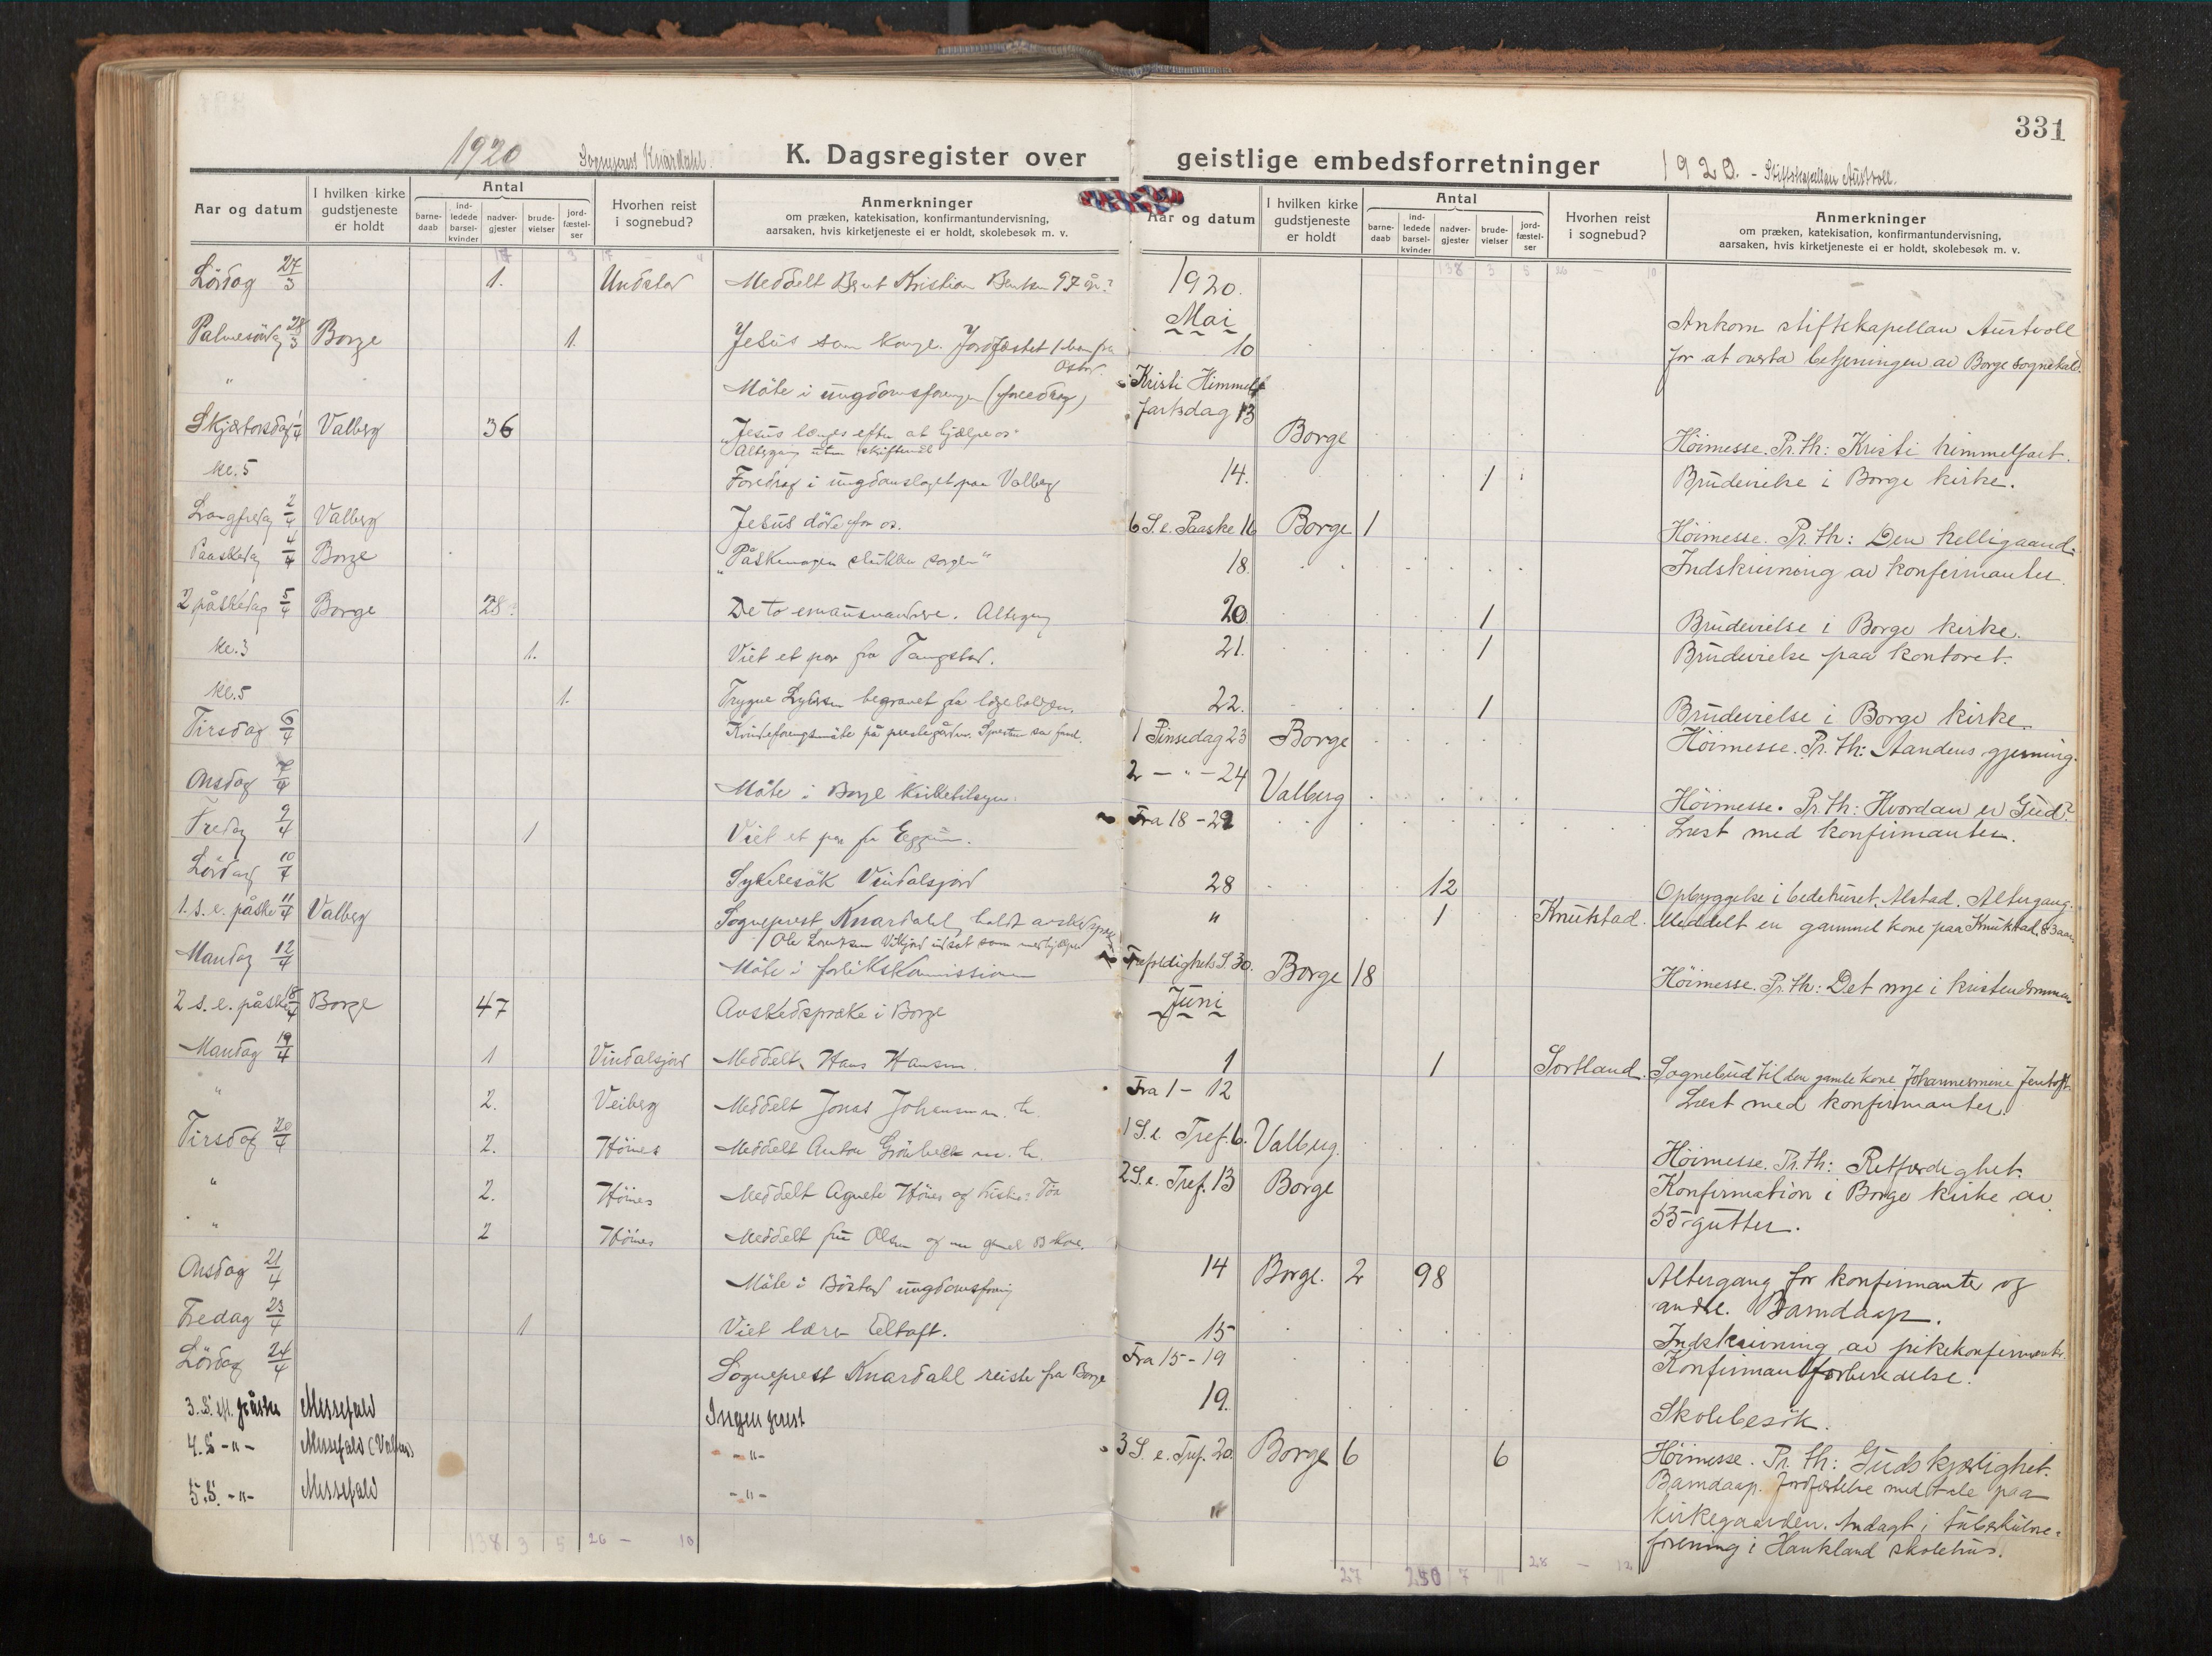 331
1920
Sogneprest Knardahl.
K. Dagsregister over
Aar og datum
I hvilken kirke gudstjeneste er holdt
Antal
barne-daab
ind-ledede barsel-kvinder
nadver-gjester
brude-vielser
jord-fæstel-ser
Hvorhen reist i sognebud?
Anmerkninger
om præken, katekisation, konfirmantundervisning,
aarsaken, hvis kirketjeneste ei er holdt, skolebesøk m. v.
Lördag 27/3 1. Undstad Meddelt Bernt Kristian 97 år
Palmesöndag 28/3 Borge 1. Jesus som konge. Jordfæstet 1 barn fra
" Möte i ungdomsforeningen (foredrag)
Skjærtorsdag 1/4 Valberg 36 Jesus længes efter at hjælpe os
Altergang uten skriftemål
kl. 5 Foredrag i ungdomslaget paa Valberg
Langfredag 2/4 Valberg Jesus döde for os.
Paaskedag 4/4 Borge „Påskemorgen slukker sorgen“
2 påskedag 5/4 Borge 28. De to emausvandrere. Altergang
kl. 3 1. Viet et par fra Tangstad.
kl. 5 1. Trygve begravet fra
Tirsdag 6/4 Kvindeforeningsmöte på prestegården.
Onsdag 7/4 Möte i Borge kirketilsyn.
Fredag 9/4 1 Viet et par fra Eggum.
Lördag 10/4 Sykebesök Vindalsjord
1. s. e. påske 11/4 Valberg Sogneprest Knardahl holdt avskedspræk
Mandag 12/4 Möte i forlikskommissionen
2 s. e. påske 18/4 Borge 47 Avskedspræke i Borge
Mandag 19/4 1 Vindalsjord Meddelt Hans Hansen.
" 2. Veiberg Meddelt Jonas Johansen m. h.
Tirsdag 20/4 2. Höines Meddelt Anton Grönbeck m. h.
" 2. Höines Meddelt Agnete Höines og
" 2 Höines Meddelt fru Olsen og en gammel
Onsdag 21/4 Möte i Böstad ungdomsforening
Fredag 23/4 1 Viet lærer Eltoft.
Lördag 24/4 Sogneprest Knardahl reiste fra Borge
3. S. ef. påske Messefald Ingen prest
4. S -"- Messefald (Valberg) -"-
5. S. -"- Messefald -"-
138 3 5 26 - 10
geistlige embedsforretninger
1920. - Stiftskapellan Austvoll.
Aar og datum
I hvilken kirke gudstjeneste er holdt
Antal
barne-daab
ind-ledede barsel-kvinder
nadver-gjester
brude-vielser
jord-fæstel-ser
Hvorhen reist i sognebud?
Anmerkninger
om præken, katekisation, konfirmantundervisning,
aarsaken, hvis kirketjeneste ei er holdt, skolebesøk m. v.
138 3 5 26 - 10
1920.
Mai
10 Ankom stiftskapellan Austvoll
for at overta betjeningen av Borge sognekald.
Kristi Himmel-
fartsdag 13 Borge Höimesse. Pr. th: Kristi himmelfart.
14. 1 Brudevielse i Borge kirke.
6 S. e. Paaske 16 Borge 1 Höimesse. Pr. th: Den helligaand.
18. Indskrivning av konfirmanter.
20. 1 Brudevielse i Borge kirke.
21. 1 Brudevielse paa kontoret.
22. 1 Brudevielse i Borge kirke.
1 Pinsedag 23 Borge Höimesse. Pr. th: Aandens gjerning.
2 - " - 24 Valberg Höimesse. Pr. th: Hvordan er Gud?
Fra 18 - 29 Læst med konfirmanter.
28 12 Opbyggelse i bedehuset, Alstad. Altergang.
" 1 Knutstad. Meddelt en gammel kone paa Knutstad, 83 aar.
Trefoldighets S. 30. Borge 18 Höimesse. Pr. th: Det nye i kristendommen.
Juni
1 1 Sortland. Sognebud til den gamle kone Johannesmine Jentoft.
Fra 1 - 12 Læst med konfirmanter.
1 S. e. Tref. 6. Valberg. Höimesse. Pr. th: Retfærdighet.
2 S. e. Tref. 13 Borge Konfirmation i Borge kirke av
55 gutter.
14 Borge. 2 98 Altergang for konfirmanter og
andre. Barndaap.
15 Indskrivning av pikekonfirmanter.
Fra 15 - 19 Konfirmantforberedelse.
19. Skolebesök.
3 S. e. Tref. 20. Borge 6 6 Höimesse. Pr. th: Guds kjærlighet.
Barndaap. Jordfæstelse med tale paa
" kirkegaarden. Andagt i tuberkulose-
forening i Haukland skolehus.
27 250 7 11 28 - 12